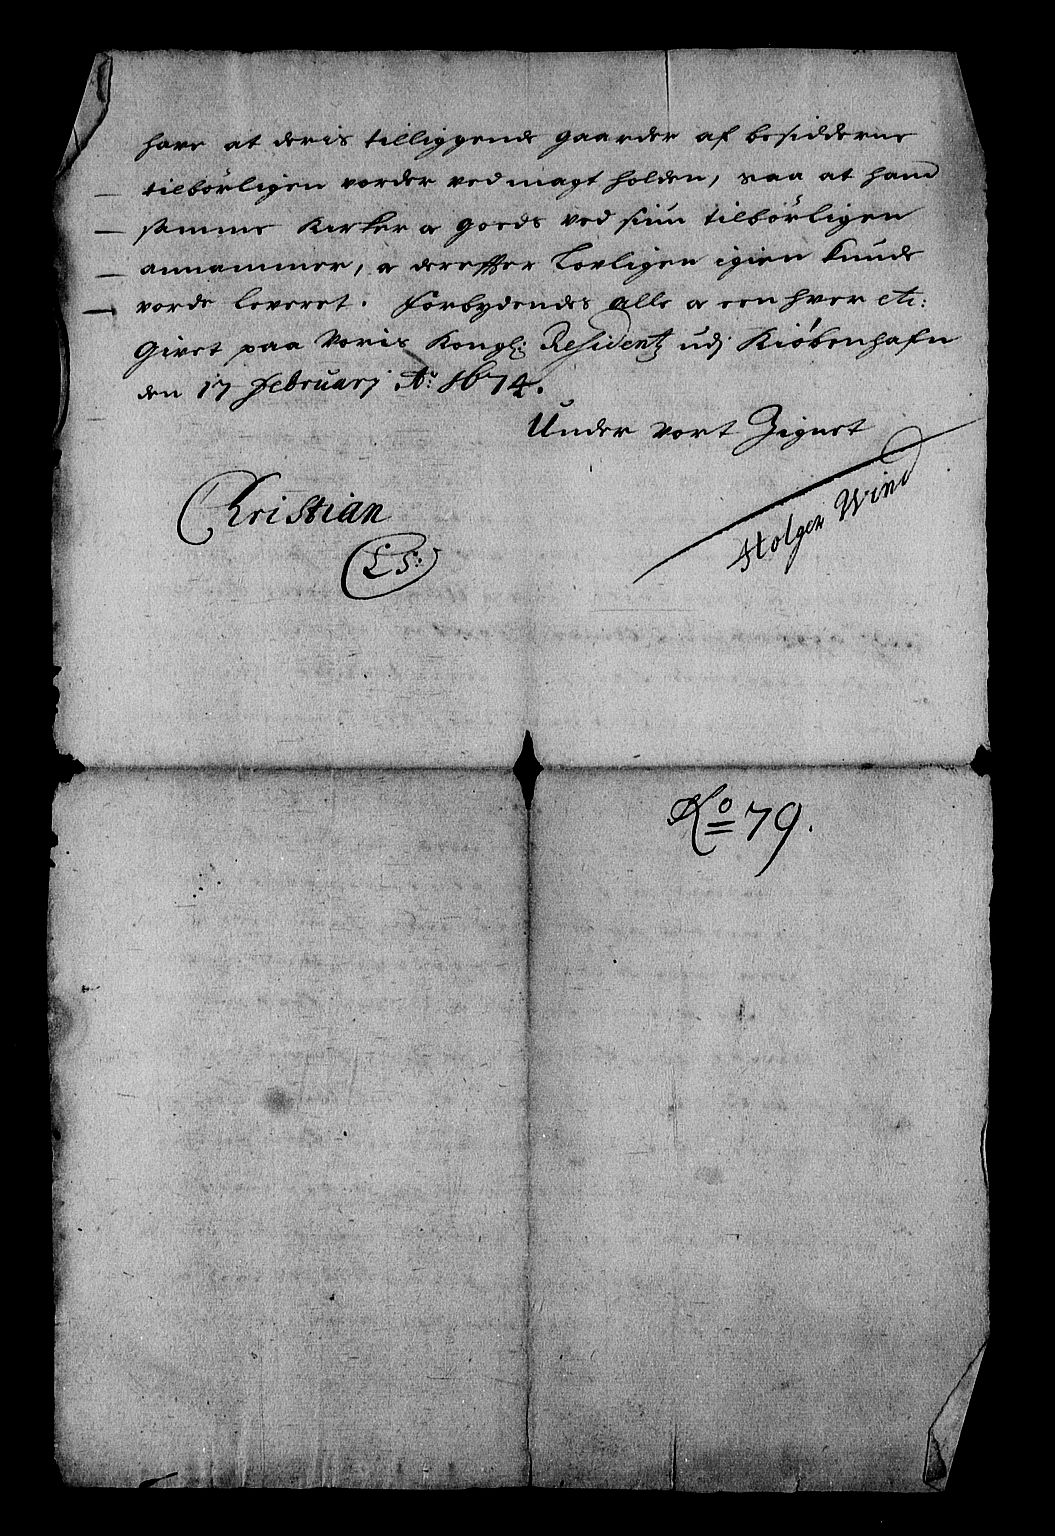 have at deris tilliggende gaarder af besidderne
tilbörligen vorder ved magt holden, saa at hand
samme Kirker & goeds ved siun tilbörligen
annammer, & dereffter lovligen igien kunde
vorde leveret. Forbydendes alle & een hver etc:
Givet paa Voris Kongl: Residentz udj Kiöbenhafn
den 17 Februarj Ao: 1674.
Under vort Zignet
Christian
LS:
Holger Wind
No 79.